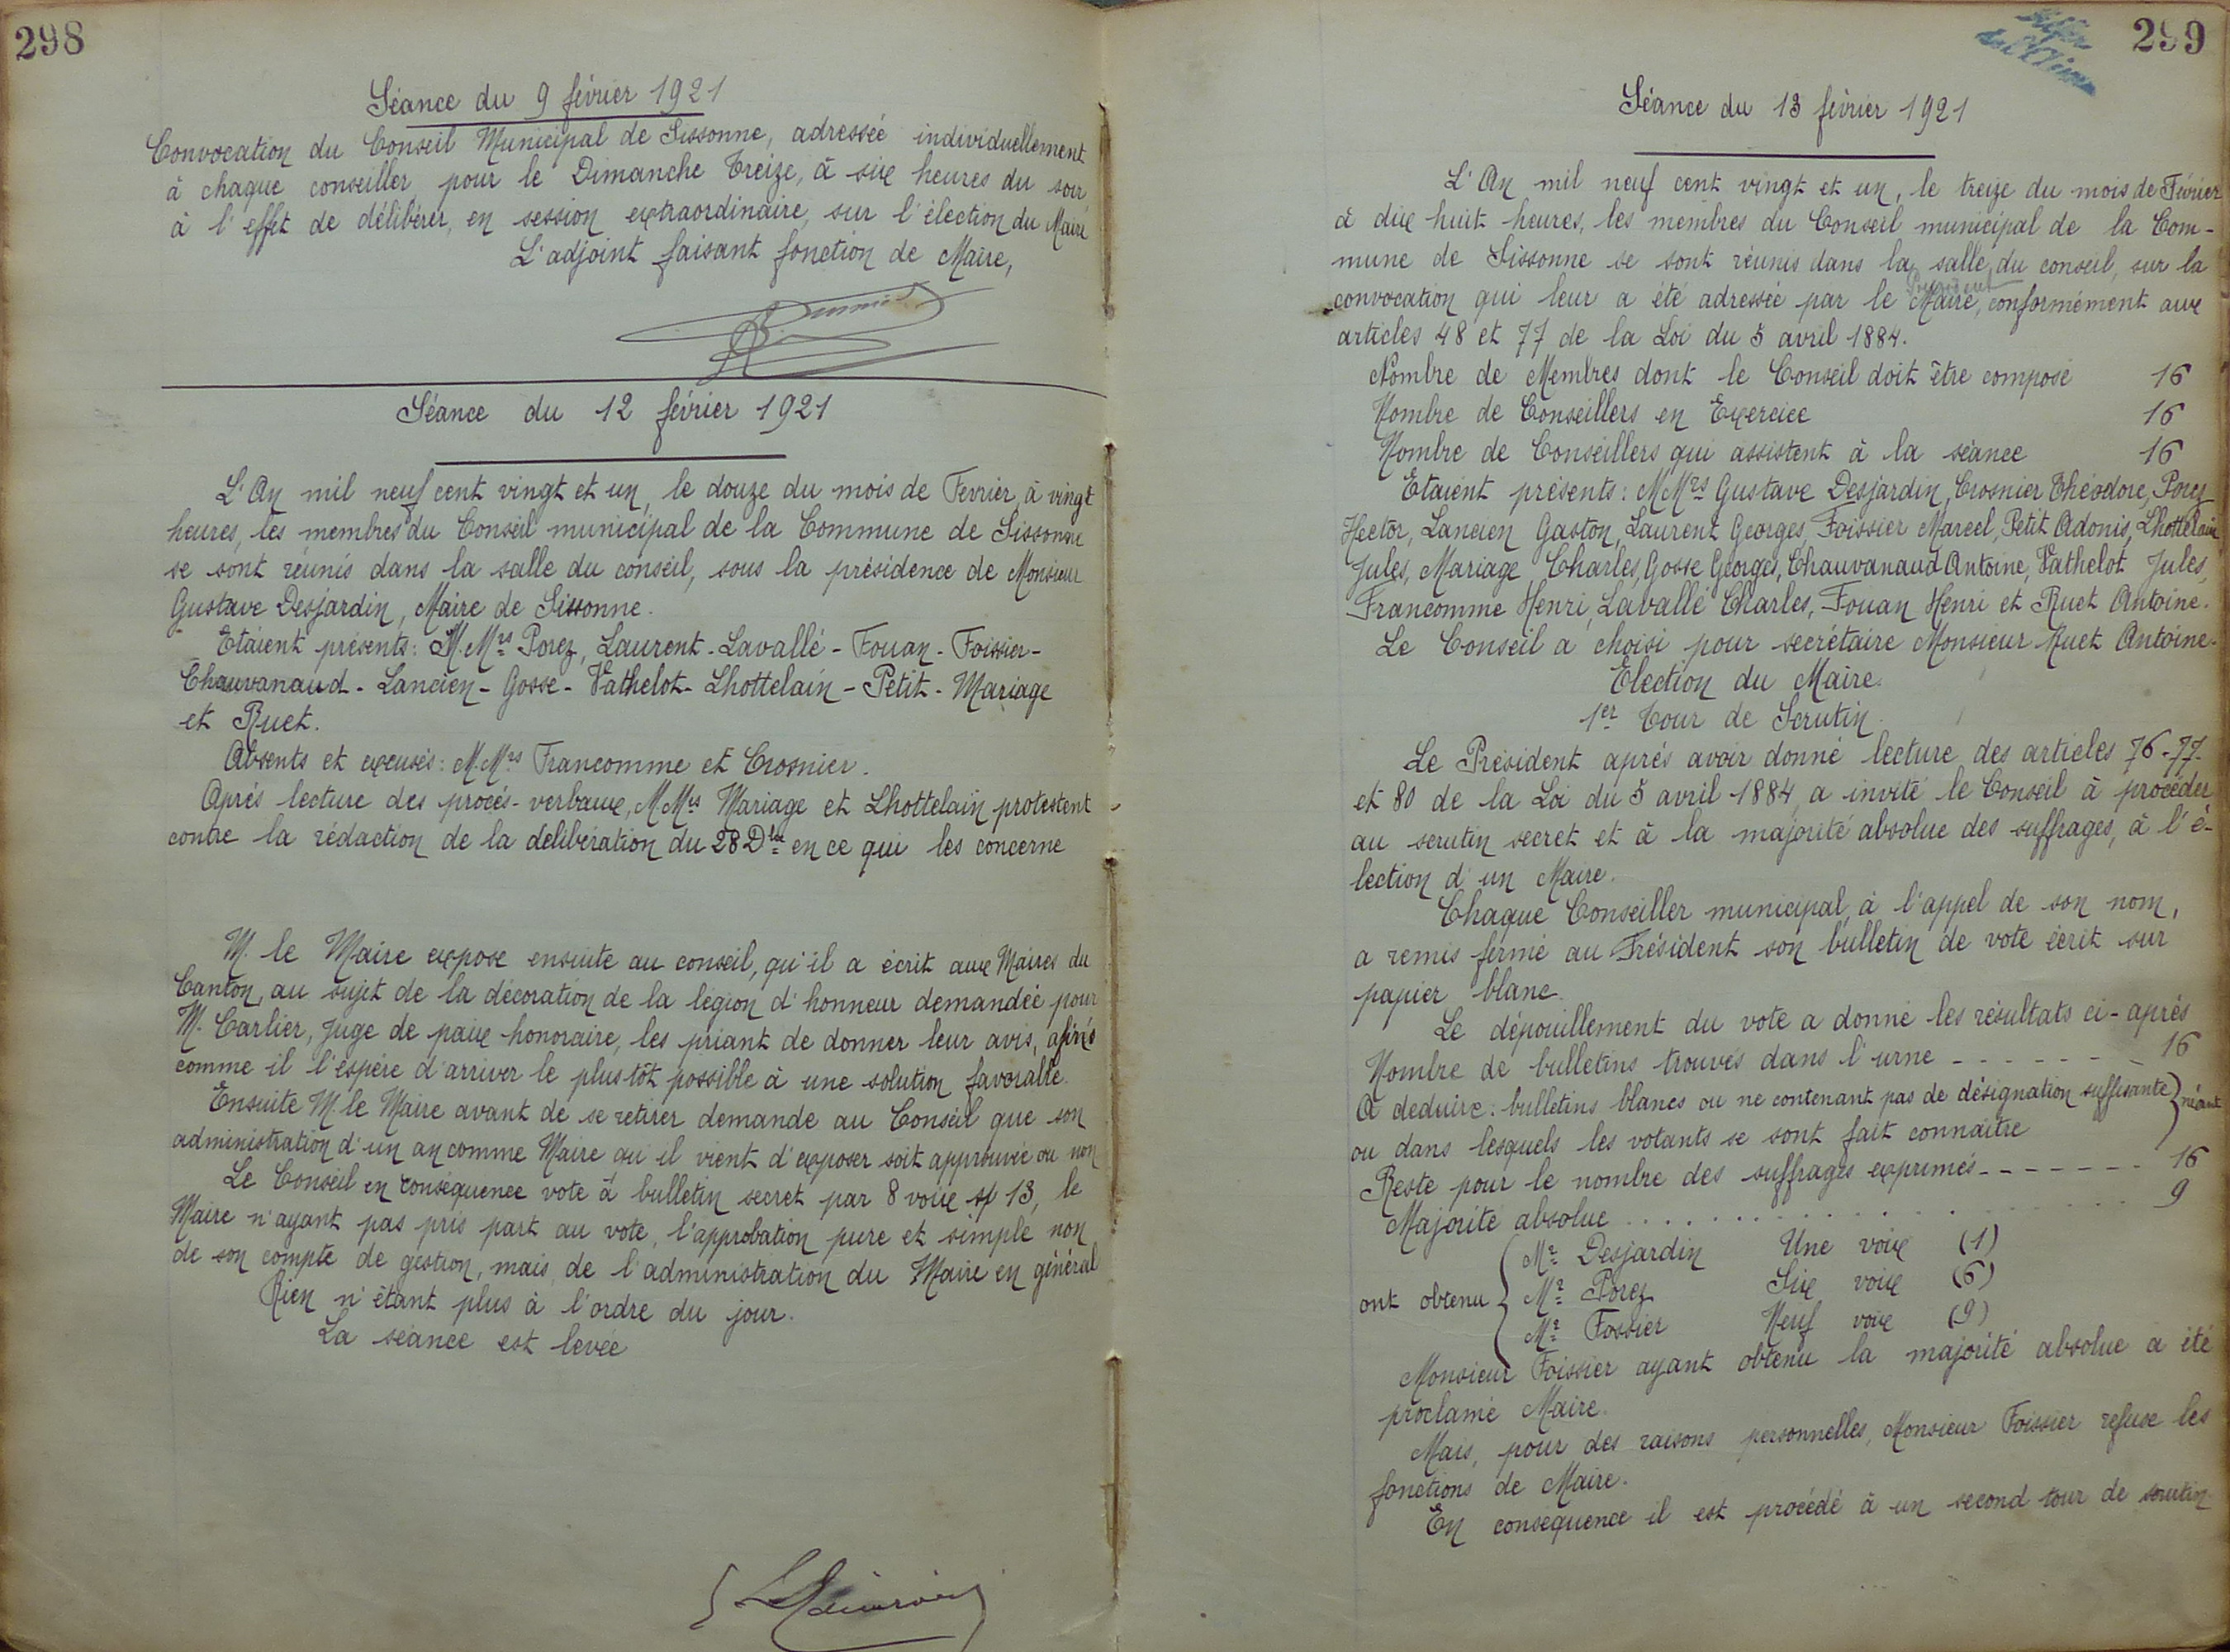 298
Séance du 9 février 1921
Convocation du Conseil Municipal de Sissonne, adressée individuellement
à chaque conseiller pour le Dimanche Treize, à six heures du soir,
à l'effet de délibérer, en session extraordinaire, sur l'élection du Maire
L'adjoint faisant fonction de Maire,
Séance du 12 février 1921
L'An mil neuf cent vingt et un, le douze du mois de Fevrier, à vingt
heures, les membres du Conseil municipal de la Commune de Sissonne
se sont réunis dans la salle du conseil, sous la présidence de Monsieur
Gustave Desjardin, Maire de Sissonne.
Etaient présents: M.Mrs Porez, Laurent - Lavallé - Fouan - Foissier -
Chauvanaud - Lancien - Gosse - Vathelot - Lhottelain - Petit - Mariage
et Ruet.
Absents et excusés: M.Mrs Francomme et Crosnier.
Après lecture des procès-verbaux, M.Mrs Mariage et Lhottelain protestent
contre la rédaction de la délibération du 28 Dbre en ce qui les concerne
M. le Maire expose ensuite au conseil, qu'il a écrit aux Maires du
Canton, au sujet de la décoration de la légion d'honneur demandée pour
M. Carlier, juge de paix honoraire, les priant de donner leur avis,
comme il l'espère d'arriver le plus tôt possible à une solution favorable.
Ensuite M. le Maire avant de se retirer demande au Conseil que son
administration d'un an comme Maire qu'il vient d'exposer soit approuvée ou non
Le Conseil en conséquence vote à bulletin secret par 8 voix s/ 13, le
Maire n'ayant pas pris part au vote, l'approbation pure et simple non
de son compte de gestion, mais de l'administration du Maire en général
Rien n'étant plus à l'ordre du jour.
La séance est levée
299
Séance du 13 février 1921
L'An mil neuf cent vingt et un, le treize du mois de Février
à dix huit heures, les membres du Conseil municipal de la Com-
mune de Sissonne se sont réunis dans la salle du conseil, sur la
Président
convocation qui leur a été adressée par le Maire, conformément aux
articles 48 et 77 de la Loi du 5 avril 1884.
Nombre de Membres dont le Conseil doit être composé 16
Nombre de Conseillers en Exercice 16
Nombre de Conseillers qui assistent à la séance 16
Etaient présents: M.Mrs Gustave Desjardin, Crosnier Théodore, Porez
Hector, Lancien Gaston, Laurent Georges, Foissier Marcel, Petit Adonis, Lhottelain
Jules, Mariage Charles, Gosse Georges, Chauvanaud Antoine, Vathelot Jules,
Francomme Henri, Lavallé Charles, Fouan Henri et Ruet Antoine.
Le Conseil a choisi pour secrétaire Monsieur Ruet Antoine.
Election du Maire.
1er Tour de Scrutin.
Le Président après avoir donné lecture des articles 76-77-
et 80 de la Loi du 5 avril 1884, a invité le Conseil à procéder
au scrutin secret et à la majorité absolue des suffrages, à l'é-
lection d'un Maire.
Chaque Conseiller municipal, à l'appel de son nom,
a remis fermé au Président son bulletin de vote écrit sur
papier blanc.
Le dépouillement du vote a donné les résultats ci-après
Nombre de bulletins trouvés dans l'urne - - - - - - - 16
A déduire: bulletins blancs ou ne contenant pas de désignation suffisante } néant
ou dans lesquels les votants se sont fait connaître
Reste pour le nombre des suffrages exprimés - - - - - - - 16
Majorité absolue . . . . . . . . . . . . . . . . 9
Mr Desjardin Une voix (1)
ont obtenu { Mr Porez Six voix (6)
Mr Fossier Neuf voix (9)
Monsieur Foissier ayant obtenu la majorité absolue a été
proclamé Maire.
Mais, pour des raisons personnelles, Monsieur Foissier refuse les
fonctions de Maire.
En conséquence il est procédé à un second tour de scrutin